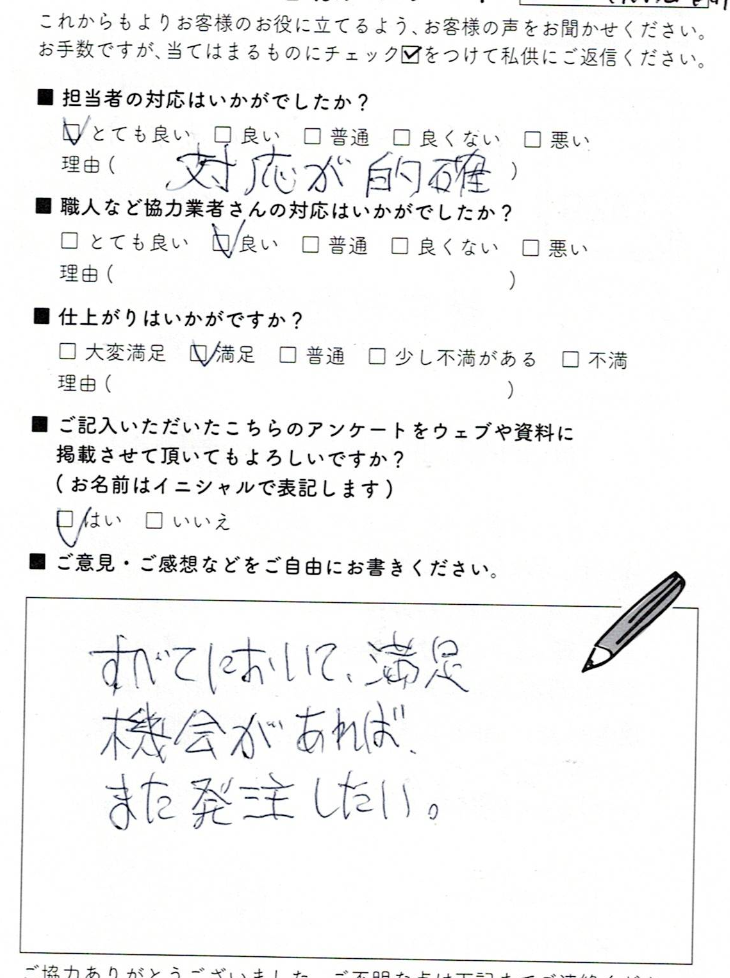 これからもよりお客様のお役に立てるよう、お客様の声をお聞かせください。
お手数ですが、当てはまるものにチェック☑をつけて私供にご返信ください。
■ 担当者の対応はいかがでしたか？
☑ とても良い □ 良い □ 普通 □ 良くない □ 悪い
理由( 対応が的確 )
■ 職人など協力業者さんの対応はいかがでしたか？
□ とても良い ☑ 良い □ 普通 □ 良くない □ 悪い
理由( )
■ 仕上がりはいかがですか？
□ 大変満足 ☑ 満足 □ 普通 □ 少し不満がある □ 不満
理由( )
■ ご記入いただいたこちらのアンケートをウェブや資料に
掲載させて頂いてもよろしいですか？
(お名前はイニシャルで表記します)
☑ はい □ いいえ
■ ご意見・ご感想などをご自由にお書きください。
すべてにおいて、満足
機会があれば、
また発注したい。
ご協力ありがとうございました。